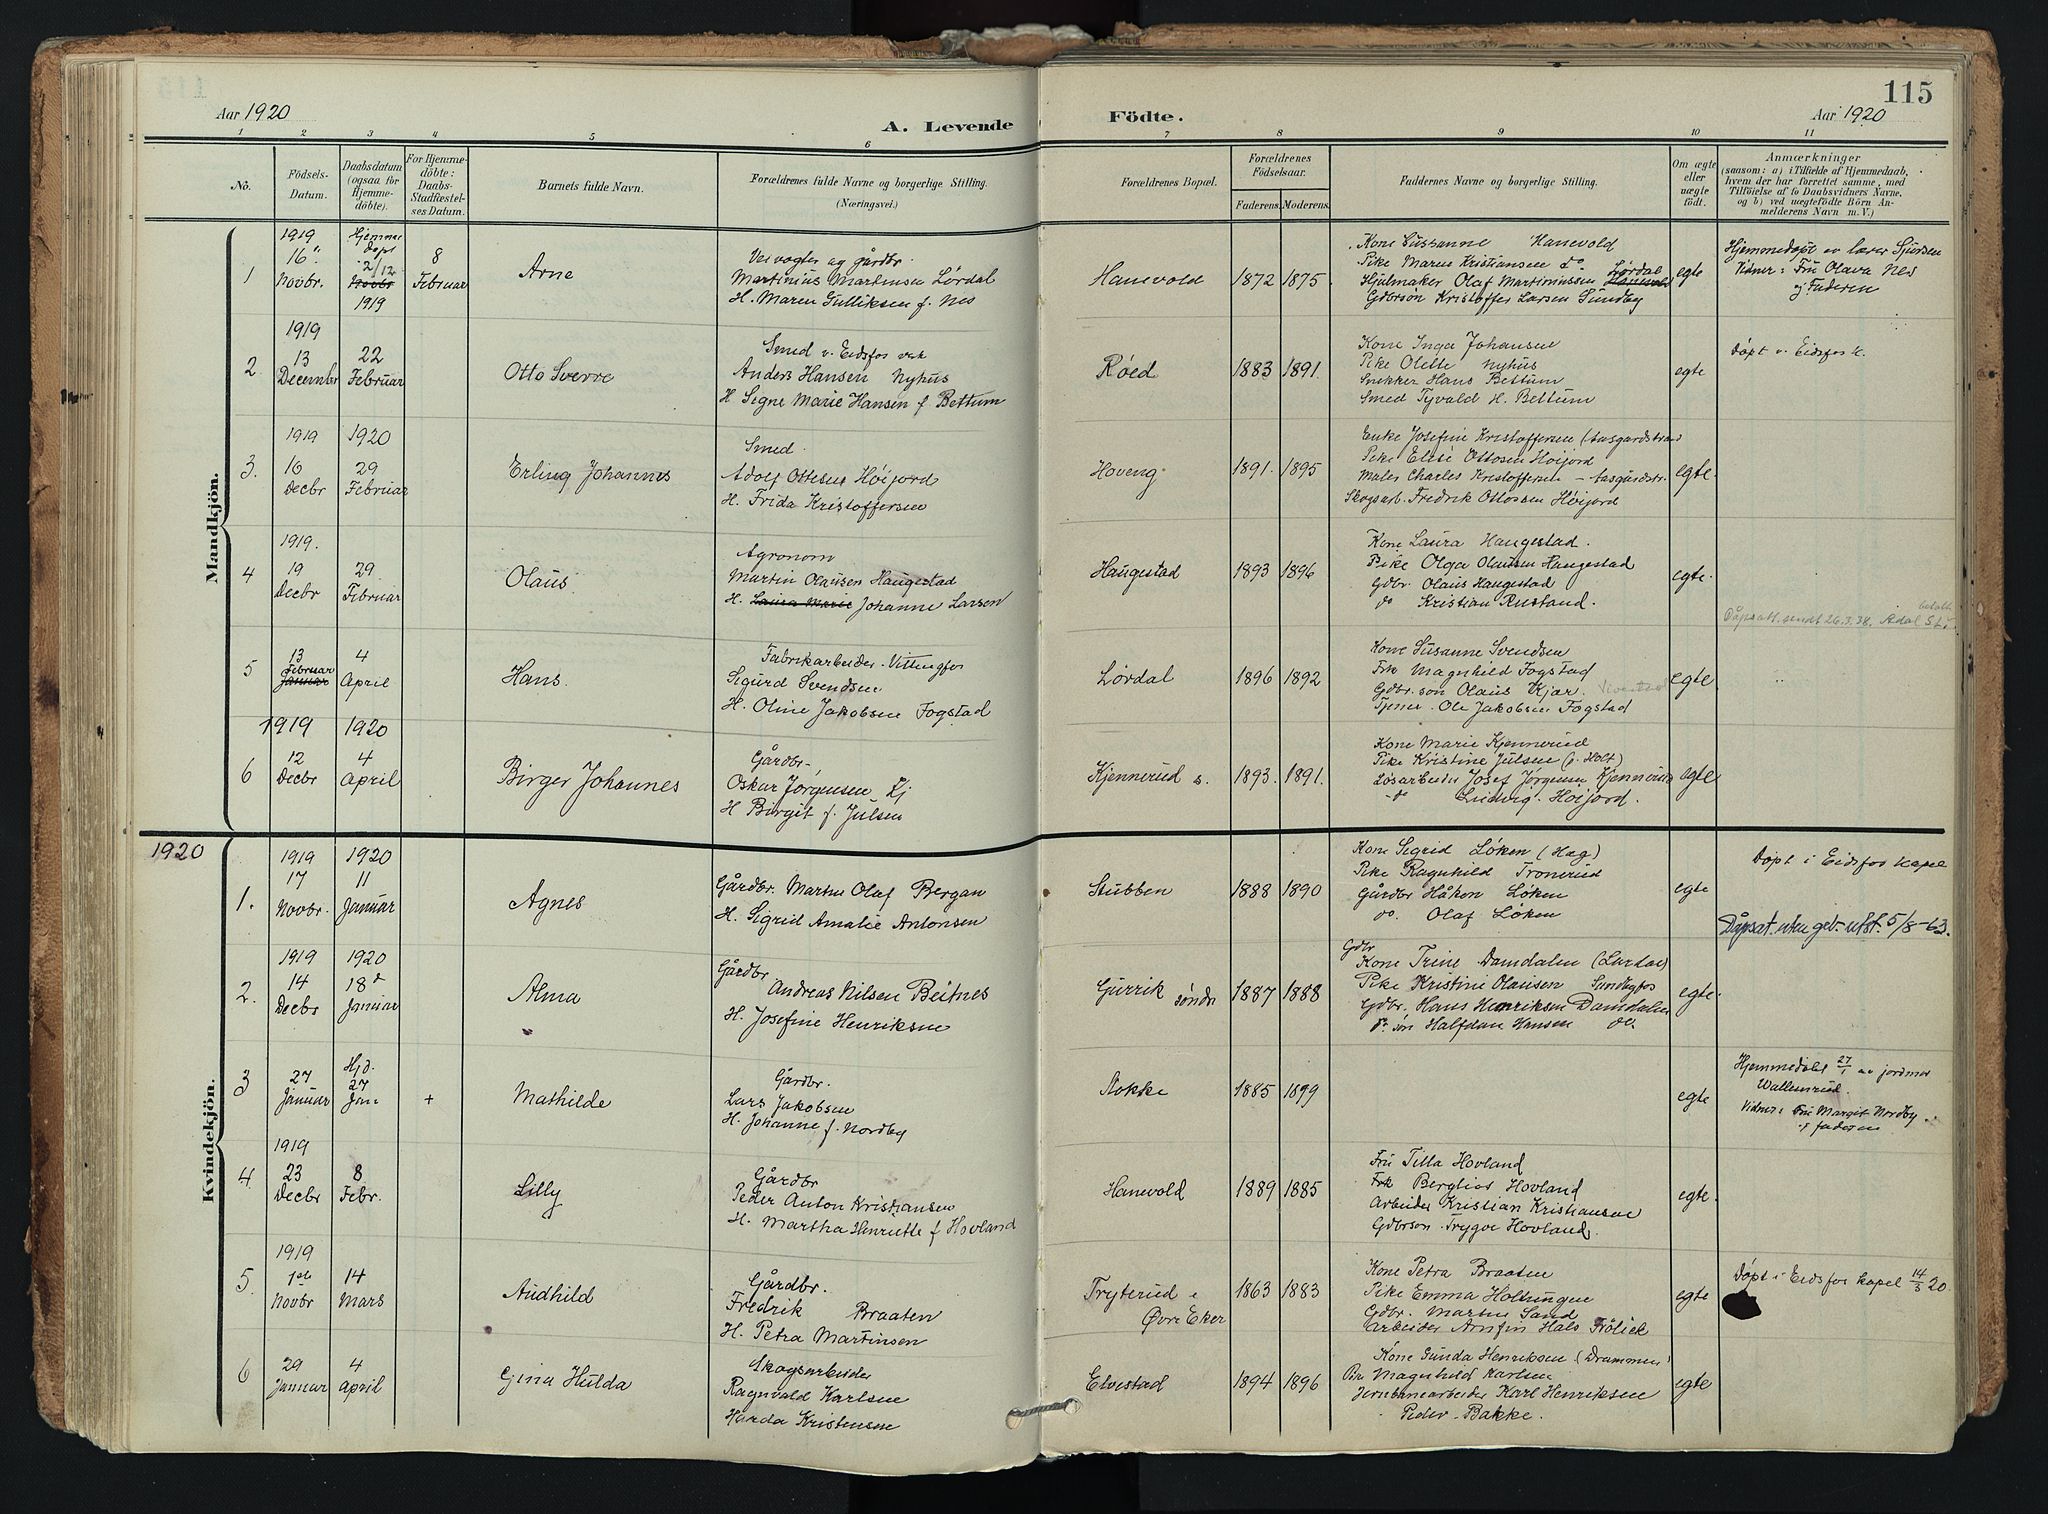 115
Aar 1920
A. Levende
Födte.
Aar 1920
1 2 3 4 5 6 7 8 9 10 11
No.
Födsels-Datum.
Daabsdatum (ogsaa for Hjemme-döbte).
For Hjemme-döbte: Daabs-Stadfæstel-ses Datum.
Barnets fulde Navn.
Forældrenes fulde Navne og borgerlige Stilling.
(Næringsvei.)
Forældrenes Bopæl.
Forældrenes Födselsaar.
Faderens. Moderens.
Faddernes Navne og borgerlige Stilling.
Om ægte eller uægte födt.
Anmærkninger
(saasom: a) i Tilfælde af Hjemmedaab,
hvem der har forrettet samme, med
Tilföielse af to Daabsvidners Navne.
og b) ved uægtefödte Börn An-
melderens Navn m. V.)
Mandkjön.
1
1919
16
Novbr.
Hjemme
døpt
2/12
Novbr
1919
8
Februar
Arne
Veivogter og gårdbr.
Martinius Martinsen Lørdal
H. Maren Gulliksen f. Nes
Hanevold
1872 1875
Kone Sussanne Hanevold
Pike Maren Kristiansen do
Hjulmaker Olaf Martiniussen Lørdal
Gdbrsön Kristoffer Larsen Sundby
egte
Hjemmedøpt av lærer Sjursen
Vidner: Fru Olava Nes
og Faderen
2
1919
13
December
22
Februar
Otto Sverre
Smed v. Eidsfos verk
Anders Hansen Nyhus
H Signe Marie Hansen f Bettum
Røed
1883 1891.
Kone Inga Johansen
Pike Olette Nyhus
Snekker Hans Bettum
Smed Tyvald H. Bettum
egte
Døpt v. Eidsfos k.
3.
1919
16
Decbr
1920
29
Februar
Erling Johannes
Smed.
Adolf Ottesen Høijord
H. Frida Kristoffersen
Hoveng
1891. 1895
Enke Josefine Kristoffersen (Aasgardstrand
Pike Elise Ottosen Høijord
Maler Charles Kristoffersen - Aasgardstr.
Skogsarb. Fredrik Ottossen Høijord
egte.
4
1919.
19
Decbr
29
Februar
Olaus
Agronom
Martin Olausen Haugestad
H. Laura Marie Johanne Larsen
Haugestad
1893 1896
Kone Laura Haugestad.
Pike Olga Olausen Haugestad
Gdbr. Olaus Haugestad
do Kristian Rustand.
egte.
Dåpsatt. sendt 26.3.38. Ådal betalt
5
13
Februar
Januar
4
April
Hans.
Fabrikarbeider. Vittingfos
Sigurd Svendsen
H. Oline Jakobsen Fogstad
Lørdal
1896 1892
Kone Susanne Svendsen
Frk Magnhild Fogstad
Gdbr. søn Olaus Kjær. Vivestad
Tjener. Ole Jakobsen Fogstad
egte.
6
1919
12
Decbr
1920
4
April
Birger Johannes
Gårdbr.
Oskar Jørgensen Kj
H Birgit f. Julsen
Kjennerud s.
1893. 1891.
Kone Marie Kjennerud
Pike Kristine Julsen (p. Holt)
Løsarbeider Josef Jørgensen Kjennerud
do Ludvig Høijord.
egte
Kvindekjön.
1920
1.
1919
17
Novbr.
1920
11
Januar
Agnes
Gårdbr. Martin Olaf Bergan
H. Sigrid Amalie Antonsen
Stubben
1888 1890
Kone Sigrid Løken (Hag)
Pike Ragnhild Tronerud
Gårdbr Håkon Løken
do. Olaf Løken
egte
Døpt i Eidsfos kapel
Dåpsat. uten geb. utst. 5/8-63.
2.
1919
14
Decbr
1920
18de
Januar
Alma
Gårdbr
Andreas Nilsen Beitnes
H. Josefine Henriksen
Gurrik søndre
1887 1888
Gdbr
Kone Trine Damdalen (Lardal)
Pike Kristine Olausen Sundbyfos
Gdbr. Hans Henriksen Damdalen
do. søn Halfdan Hansen do.
egte.
3
27
Januar
Hjd.
27
Jan
+
Mathilde
Gårdbr.
Lars Jakobsen
H. Johanne f. Nordby
Stokke
1885 1899
egte
Hjemmedøbt 27/1 av jordmor
Wallemrud
Vidner: Fru Margit Nordby
og faderen
4
1919
23
Decbr
8
Febr.
Lilly
Gårdbr
Peder Anton Kristiansen
H. Martha Henriette f Hovland
Hanevold
1889 1885
Fru Tilla Hovland
Frk Bergliot Hovland
Arbeider Kristian Kristiansen
Gdbrsøn. Trygve Hovland.
egte.
5.
1919
1ste
Novbr
14
Mars
Audhild
Gårdbr.
Fredrik Braaten
H. Petra Martinsen
Tryterud i
Øvre Eker
1863 1883
Kone Petra Braaten
Pike Emma Holtungen
Gdbr. Martin Sand
Arbeider Arnfin Hals Frölich
egte
Døpt i Eidsfos kapel 14/3 20.
6
29
Januar
4
April
Gina Hulda
Skogsarbeider
Ragnvald Karlsen
Harda Kristensen
Elvestad
1894 1896
Kone Gunda Henriksen (Drammen)
Pike Magnhild Karlsen
Jernbanearbeider Karl Henriksen
Peder Bakke.
egte